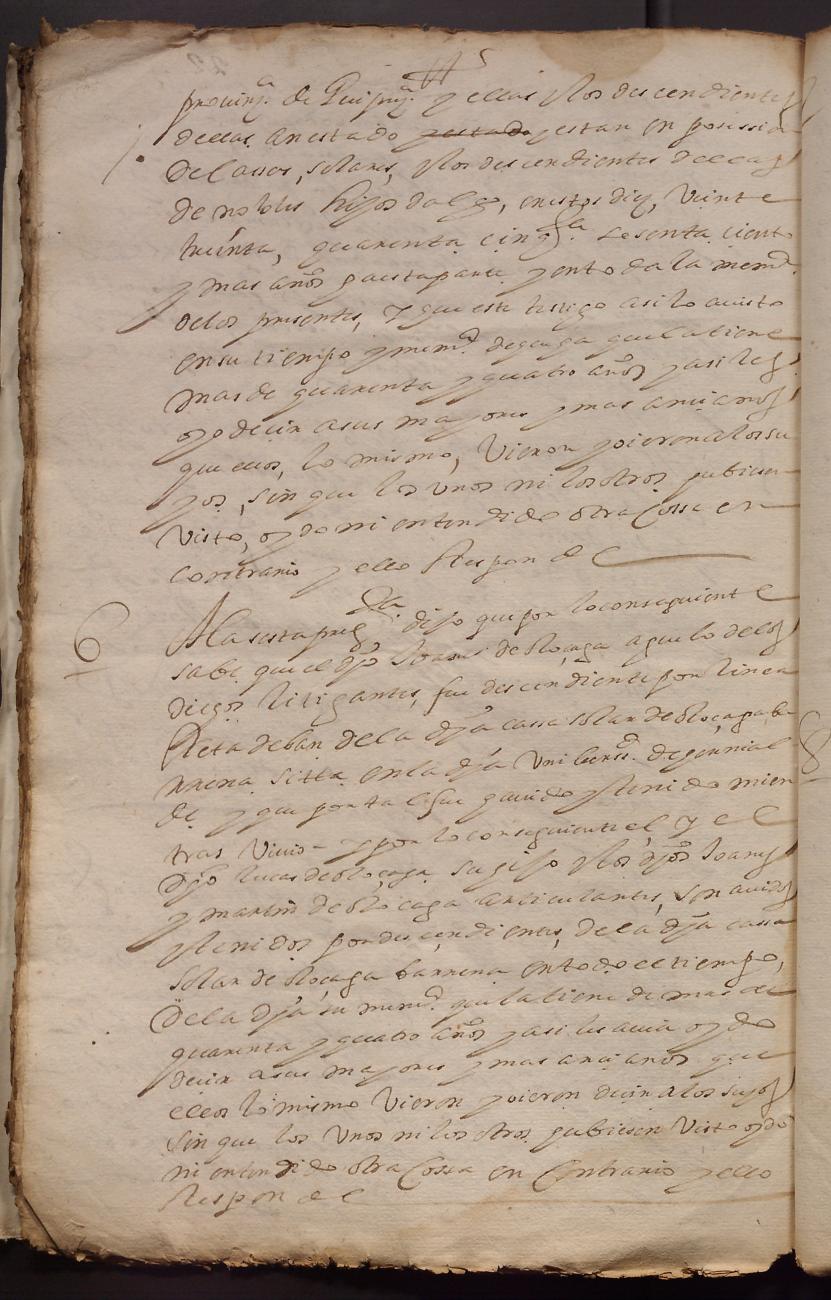 provinçia de Guipuzcª y ellas y los descendientes
dellas an estado y estan en posession
de Cassas, solares, y los descendientes dellas
de nobles hijos dalgo, en estos diez, Veinte
treinta, quarenta cinqta sesenta ciento
y mas años a esta parte y en toda la memª
de los presentes, Y que este testigo asi lo a visto
en su tiempo y memª de que la tiene
mas de quarenta y quatro años y asi les
oyo deçir a sus mayores y mas ancianos
que ellos, lo mismo, Vieron y oieron a los su
yos, sin que los unos ni los otros hubiesen
Visto, oydo ni entendido otra Cossa en
contrario y ello Responde
6
A la sesta pregta dijo que por lo consiguiente
sabe que el dho Joanes de aguelo de los
dichos litigantes, fue descendiente por linea
Reta de la dha cassa solar de
rrena sitta en la dha Universª de
de y que por tal fue avido y tenido mien
tras Vivio y por lo consiguiente el, y el
dho lucas de su hijo y los dhos Joanes
y martin de articulantes, son avidos
y tenidos por descendientes, de la dha cassa
solar de barrena en todo el tiempo,
de la dha su memª que la tiene de mas de
quarenta y quatro años y asi les avia oydo
deçir a sus mayores y mas ancianos que
ellos lo mismo Vieron y oieron deçir a los suyos
sin que los Unos ni los otros hubiesen Visto oydo
ni entendido otra Cossa en Contrario y ello
Responde